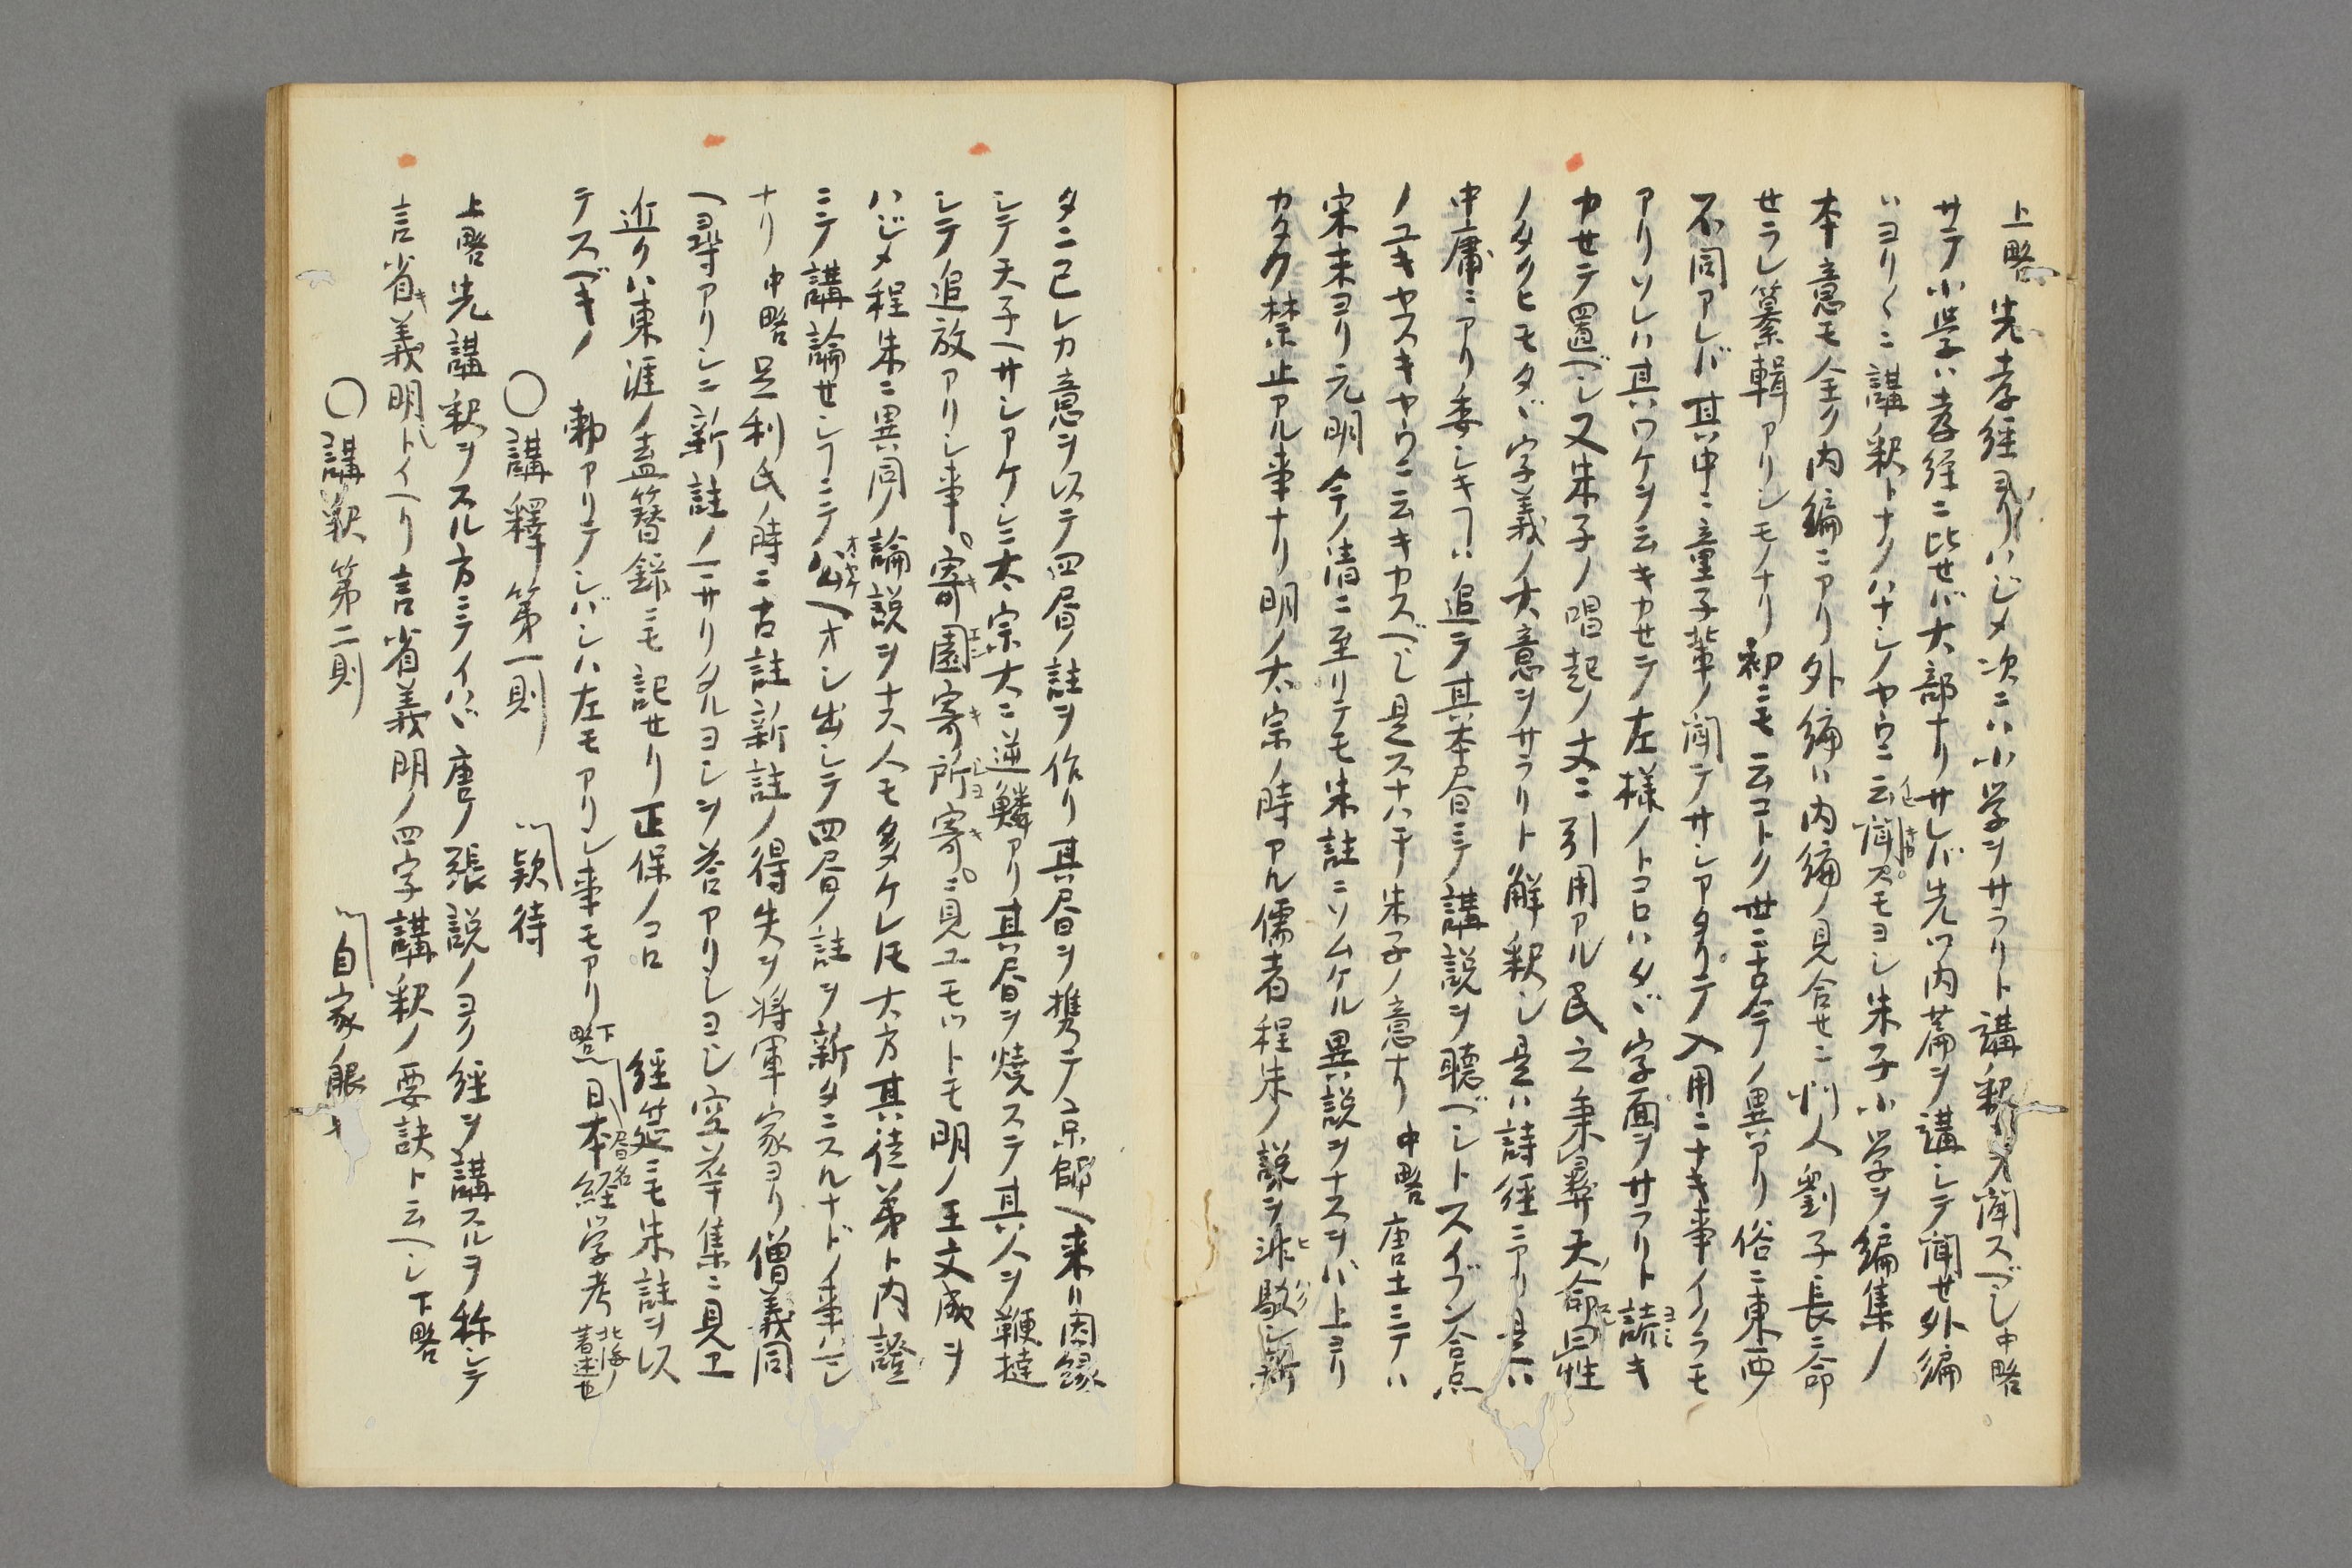 上略先孝経ヨリハジメ次ニハ小学ヲサラリト講釈ヲ聞スベシ中略
サテ小学ハ孝経ニ比セバ大部ナリサレバ先ヅ内篇ヲ講シテ聞セ外編
ハヨリ〳〵ニ講釈トナクハナシノヤウニ云聞スモヨシ朱子小学ヲ編集ノ
本意モ全ク内編ニアリ外編ハ内編ノ見合セニ門人劉子長ニ命
セラレ纂輯アリシモノナリ初ニモ云コトク世ニ古今ノ異アリ俗ニ東西
不同アレバ其中ニ童子輩ノ聞テサシアタリテ入用ニナキ事イクラモ
アリソレハ其ワケヲ云キカセテ左様ノトコロハタヾ字面ヲサラリト読キ
カセテ置ベシ又朱子ノ唱起ノ丈ニ引用アル民之秉彝天命曰性
ノタクヒモタヾ字義ノ大意ヲサラリト解釈シ是ハ詩経ニアリ是ハ
中庸ニアリ委シキヿハ追テ其本書ニテ講説ヲ聴ベシトスイブン合点
ノユキヤスキヤウニ云キカスベシ是スナハチ朱子ノ意ナリ中略唐土ニテハ
宋末ヨリ元明今ノ清ニ至リテモ朱註ニソムケル異説ヲナスヲバ上ヨリ
カタク禁止アル事ナリ明ノ太宗ノ時アル儒者程朱ノ説ヲ非駁シ新
タニ已レカ意ヲ以テ四書ノ註ヲ作リ其書ヲ携テ京師ヘ来リ因縁
シテ天子ヘサシアケシニ太宗大ニ逆鱗アリ其書ヲ焼ステ其人ヲ鞭撻
シテ追放アリシ事寄園寄所寄ニ見ユモットモ明ノ王文成ヲ
ハジメ程朱ニ異同ノ論説ヲナス人モ多ケレ𪜈大方其徒弟ト内證
ニテ講論セシヿニテ公ヘオシ出シテ四書ノ註ヲ新タニスルナドノ事ハナシ
ナリ中略足利氏ノ時ニ古註新註ノ得失ヲ将軍家ヨリ僧義同
ヘ尋アリシニ新註ノ一ニサリタルヨシヲ答アリシヨシ空華集ニ見ヱ
近クハ東涯ノ盍簪録ニモ記セリ正保ノコロ　経筵ニモ朱註ヲ以
テスベキノ　勅アリテシバシハ左モアリシ事モアリ下略日本経学考書名北海ノ著述也
〇講釋第一則　款待
上略先講釈ヲスル方ニテイハヾ唐ノ張説ノヨク経ヲ講スルヲ称シテ
言省義明トイヘリ言省義明ノ四字講釈ノ要訣ト云ヘシ下略
〇講釈第二則　自家眼